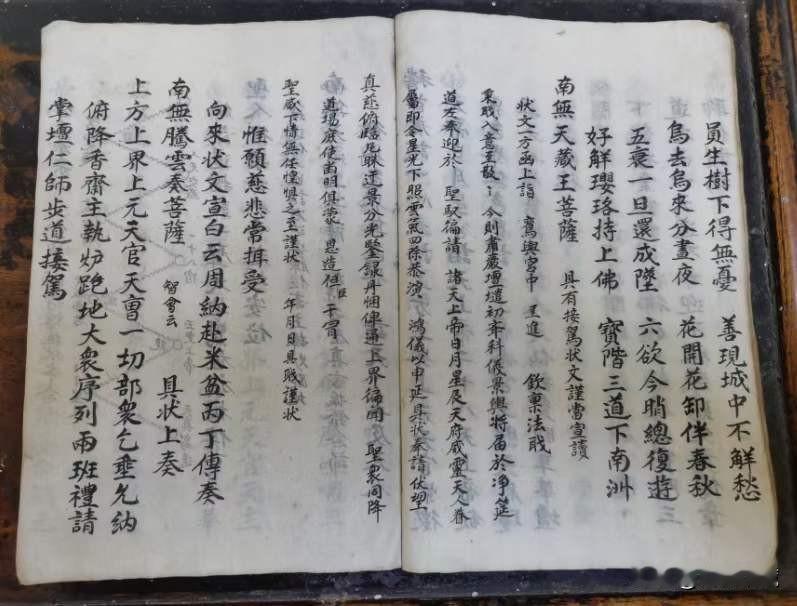 員生樹下得無憂 善現城中不解愁
烏去烏來分晝夜 花開花卸伴春秋
五衰一旦還成墜 六欲今朝總復遊
好解瓔珞持上佛 寶階三道下南洲
南無天藏王菩薩 具有接駕状文謹當宣讀
状文一方函上詣 鸞輿宮中 呈進 欽稟法職
秉職入意至散〻 今則肅嚴壇墠初奔科儀景輿將届於净筵
道左奉迎於 聖馭徧請 諸天上帝日月星辰天府威靈天人眷
屬即令星光下照雲氣四除恭演 鴻儀以申延具状奉請伏望
真慈俯賜 迂景分光鑒錄丹悃俾通上界徧聞 聖衆同降
道場庶使幽明俱蒙 恩造但臣干冒
聖威下情無任惶懼之至謹状 年月日具職謹状
惟願慈悲常揖受
向來状文宣白云周納赴米盆丙丁傳奏
南無騰雲奏菩薩 智會云 具状上奏
上方上界上元天官天曹一切部衆乞垂允納
俯降香齋主執炉跪地大衆序列兩班禮請
掌壇仁師步道接駕